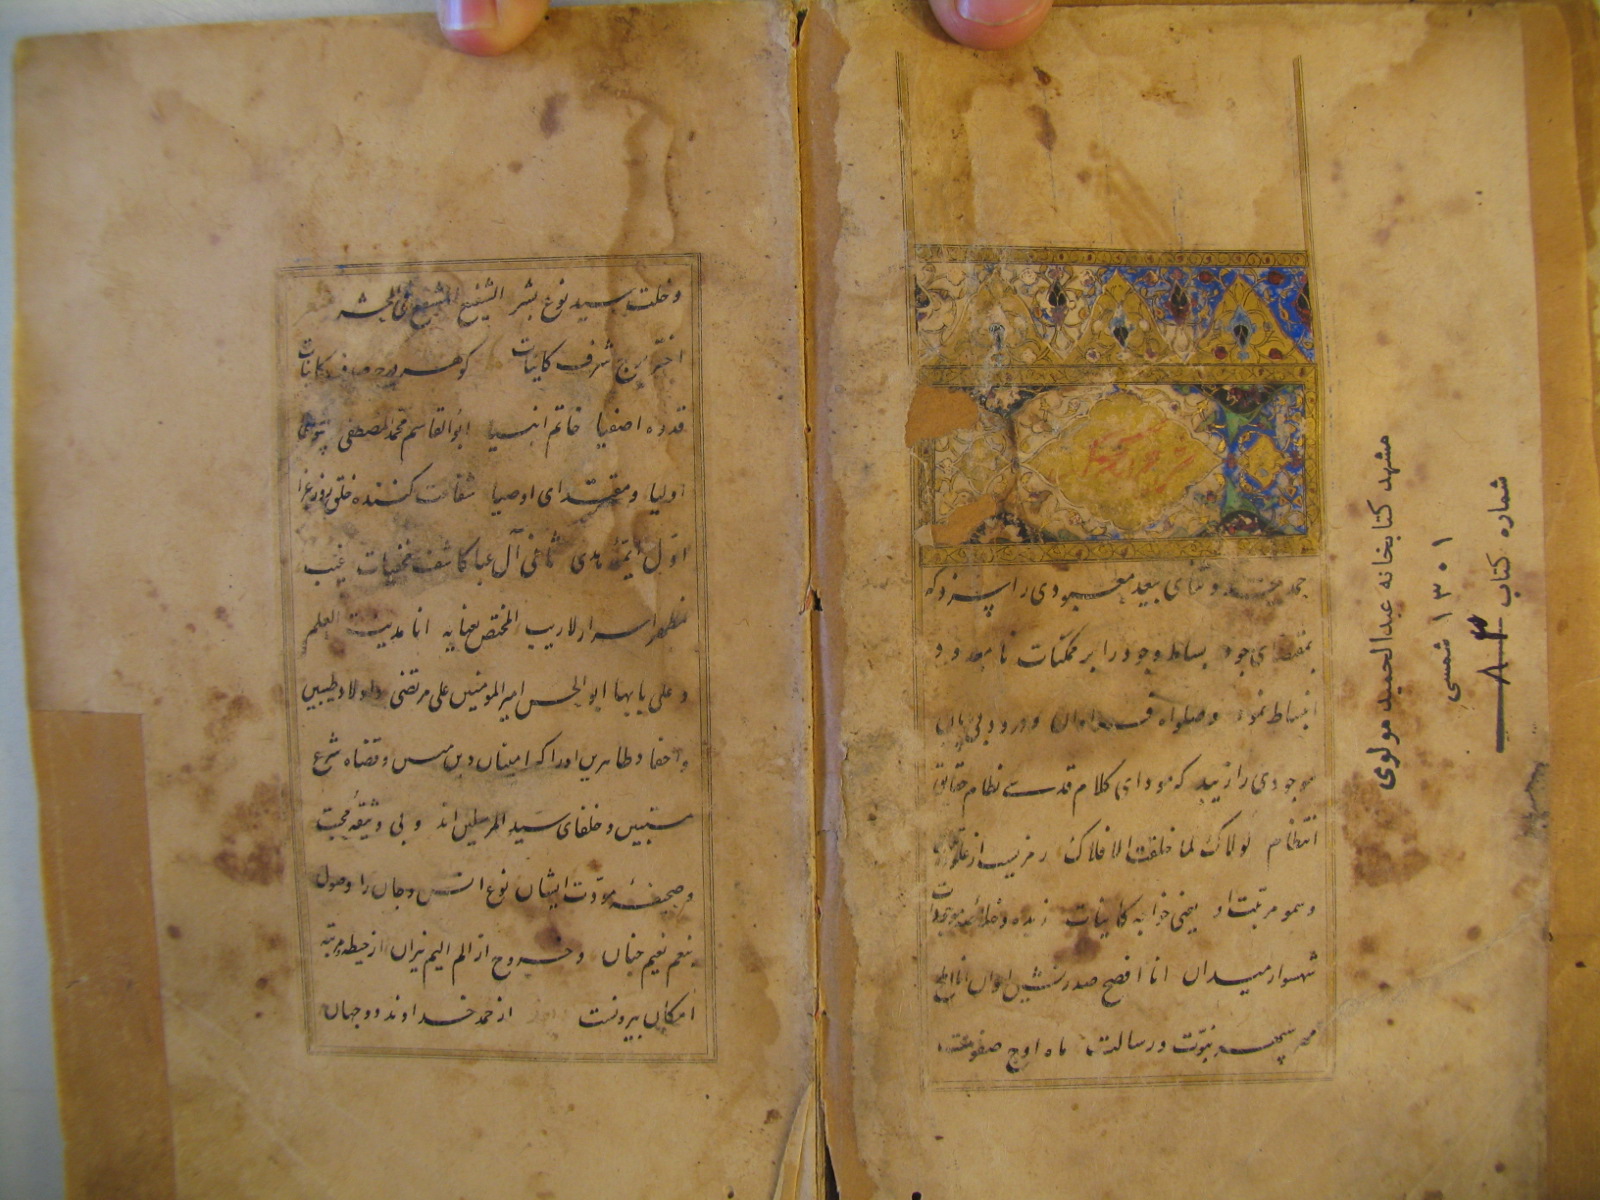 حمد بیحد و ثنای بیعد معبودی را سزد که
بمقتضای جود بساط وجود را بر ممکنات نا معدود
انبساط نمود و صلواة فراوان و درود بی پایان
موجودی را زیبد که مودای کلام قدسی نظام حقایق
انتظام لولاک لما خلقت الافلاک رمزیست از علو
و سمو مرتبت او یعنی خواجه کاینات زبده و خلاصه موجودات
شهسوار میدان انا افصح صدرنشین ایوان انا املح
مهر سپهر نبوت و رسالت ماه اوج صفوت
و خلت سید نوع بشر الشفیع المشفع فی المحشر
اختر برج شرف کاینات کوهر درج صدف کاینات
قدوه اصفیا خاتم انبیا ابوالقاسم محمد المصطفی
اولیا و مقتدای اوصیا شفاعت کننده خلق روز جزا
اول ایمهٔ هدی ثانی آل عبا کاشف مخفیات غیب
مظهر اسرار لاریب المختص بعنایه انا مدینة العلم
و علی بابها ابو الحسن امیر المومنین علی مرتضی و اولاد طیبین
و احفاد طاهرین او را که امینان دین مبین و قضاه شرع
مستبین و خلفای سید المرسلین اند و بی وثیقهٔ محبت
و صحیفهٔ مودت ایشان نوع انس و جان را وصول
بنعم نعیم جنان و خروج از الم الیم نیران از حیطه مرتبه
امکان بیرونست از حمد خداوند دو جهان
مشهد کتابخانه عبدالحمید مولوی
۱۳۰۱ شمسی
شماره کتاب ۸۳